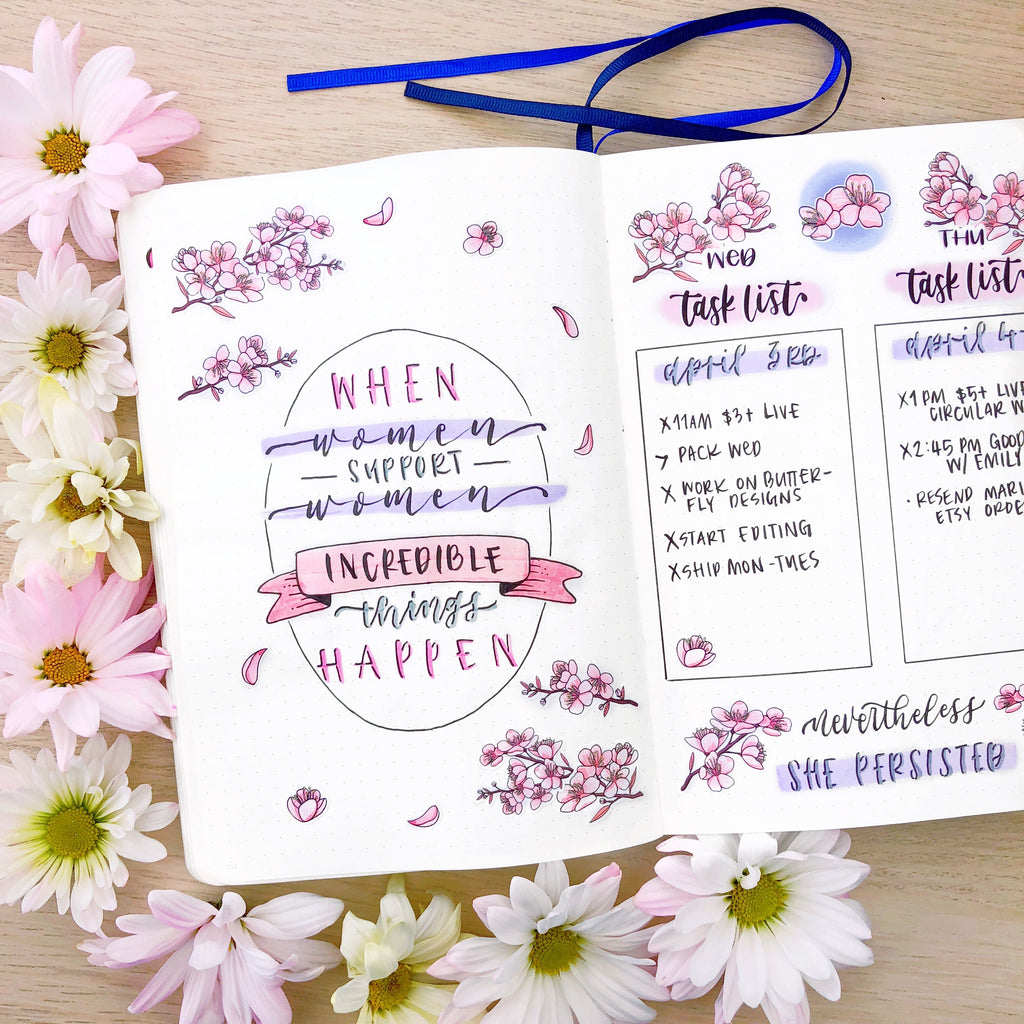 WHEN
women
SUPPORT
women
INCREDIBLE
things
HAPPEN
WED
task list
april 3RD
X 11AM $3+ LIVE
> PACK WED
X WORK ON BUTTER-
FLY DESIGNS
X START EDITING
X SHIP MON-TUES
THU
task list
april 4
X 1 PM $5+ LIVE
CIRCULAR
X 2:45 PM
W/ EMILY
· RESEND
ETSY
nevertheless
SHE PERSISTED